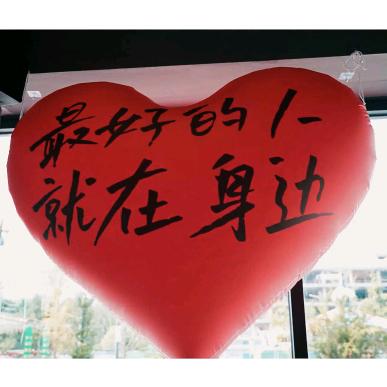 最好的人
就在身边